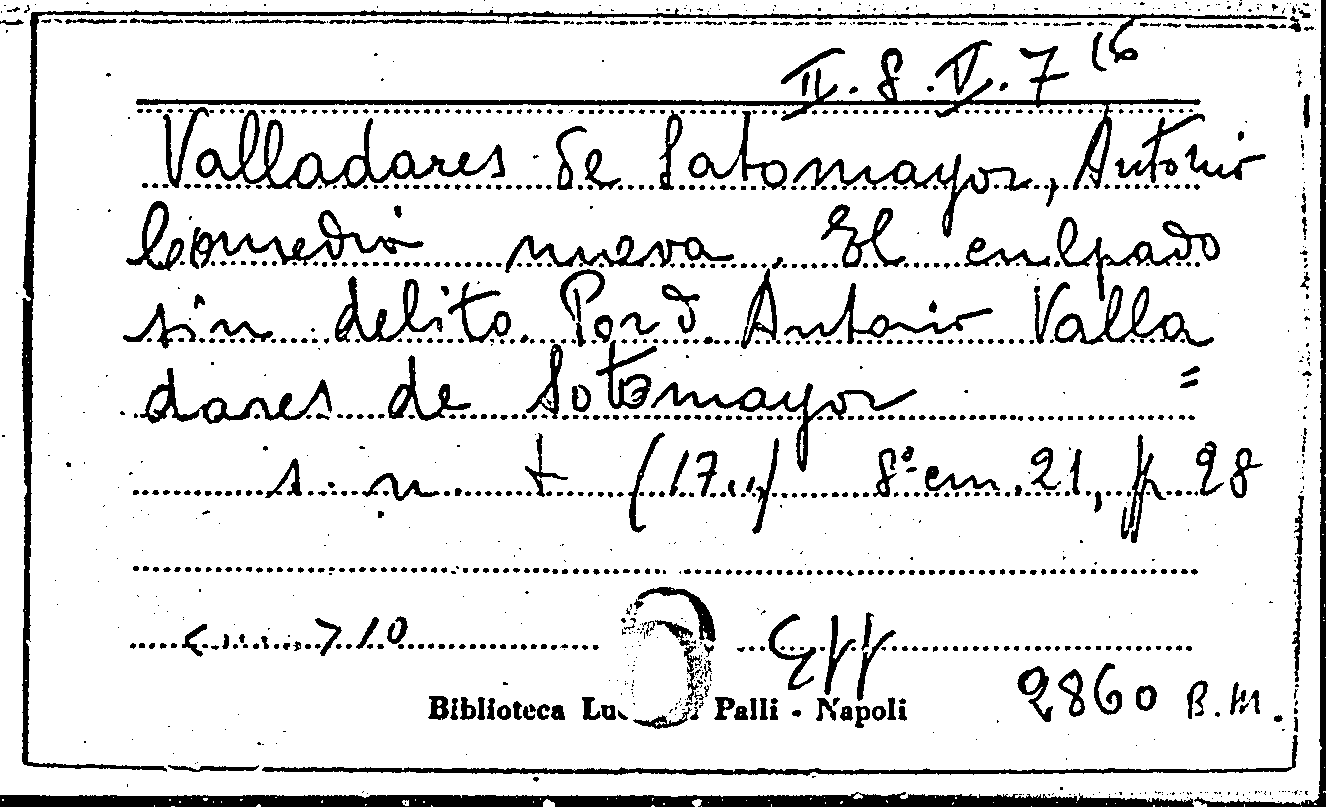 II. 8. V. 7 16
Valladares de Satomayor, Antonio
Comedia nueva. El culpado
sin delito. Por d. Antonio Valla
dares de Sotomayor =
s. n. t (17..) 8° cm. 21, p 28
<......> 10
Biblioteca Palli - Napoli
2860 B.M.